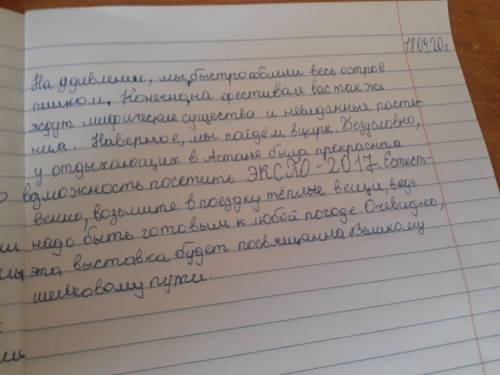 18.09.20г
На удивление, мы, быстро обошли весь остров
пешком. Конечно, на фестивале вас так же
ждут мифические существа и невиданные расте-
ния. Наверное, мы пойдём в цирк. Безусловно,
у отдыхающих в Астане была прекрасная
возможность посетить ЭКСПО-2017. Естест-
венно, возьмите в поездку тёплые вещи, ведь
надо быть готовым к любой погоде. Очевидно,
эта выставка будет посвящанна Великому
шёлковому пути.